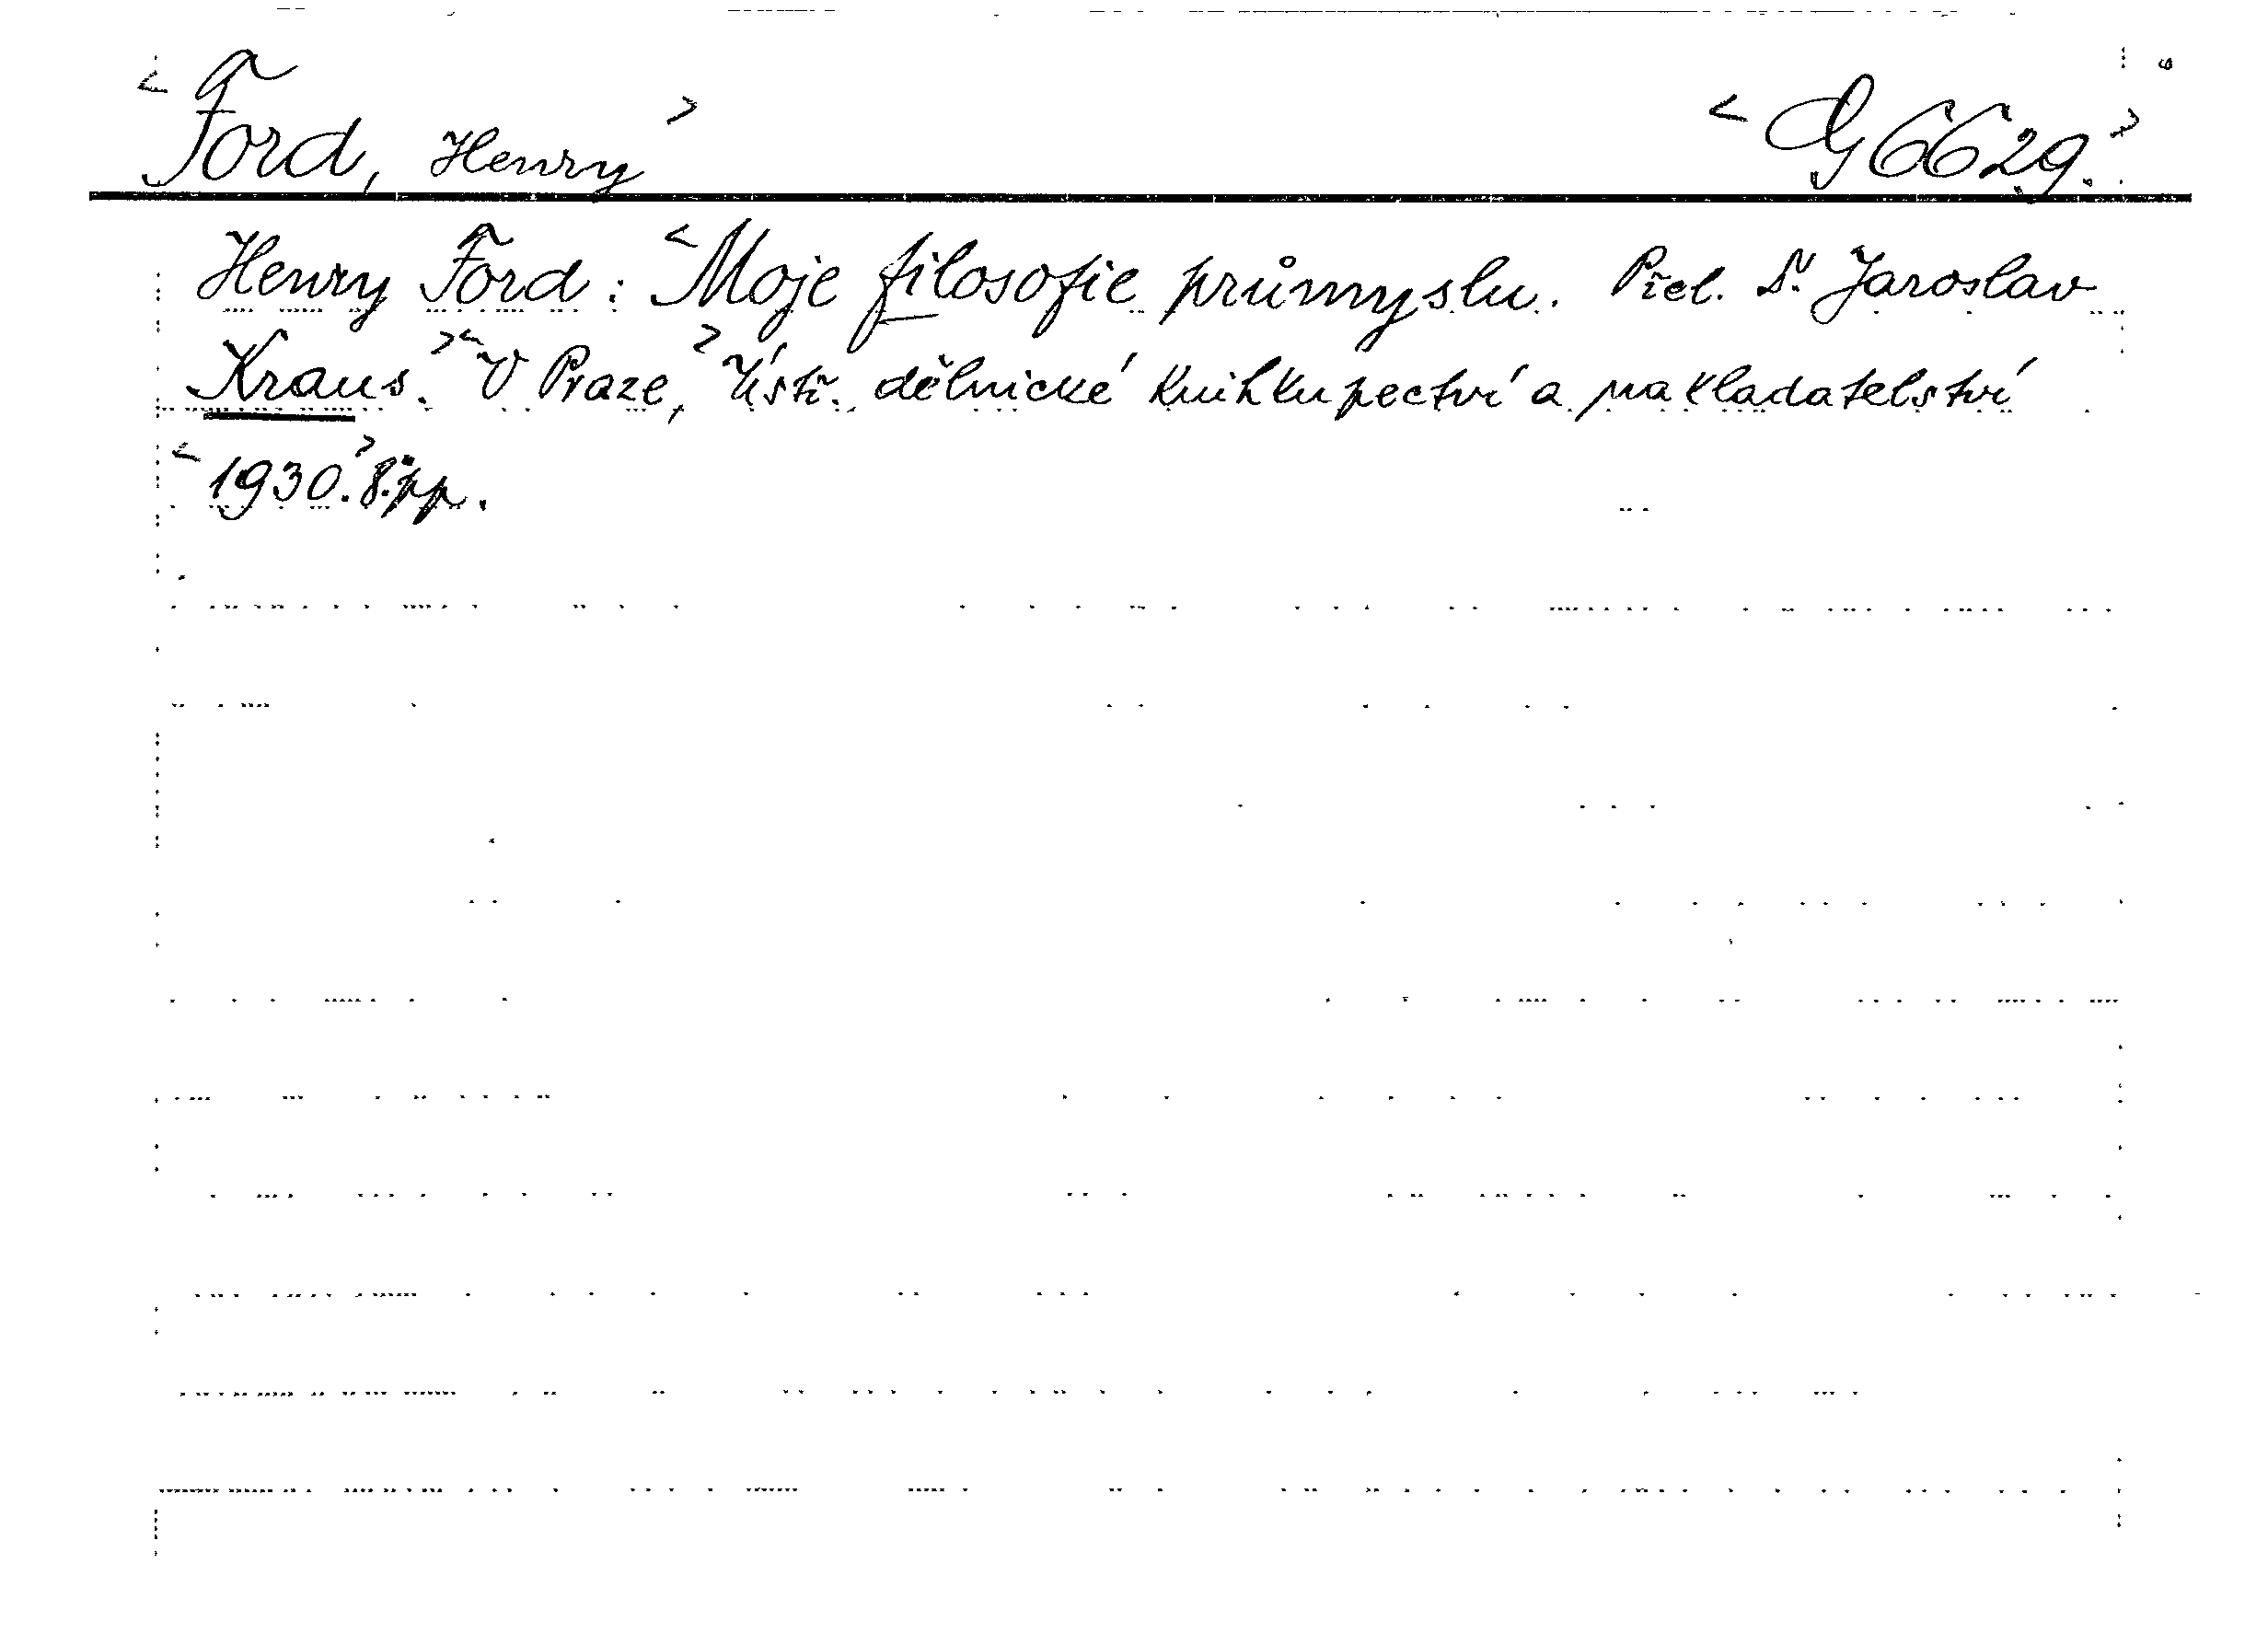 <Ford, Henry> <G 6629.>
Henry Ford: <Moje filosofie průmyslu. Přel. Dr. Jaroslav
Kraus.> <V Praze,> Ústř. dělnické knihkupectví a nakladatelství
<1930.> 8.° pp.